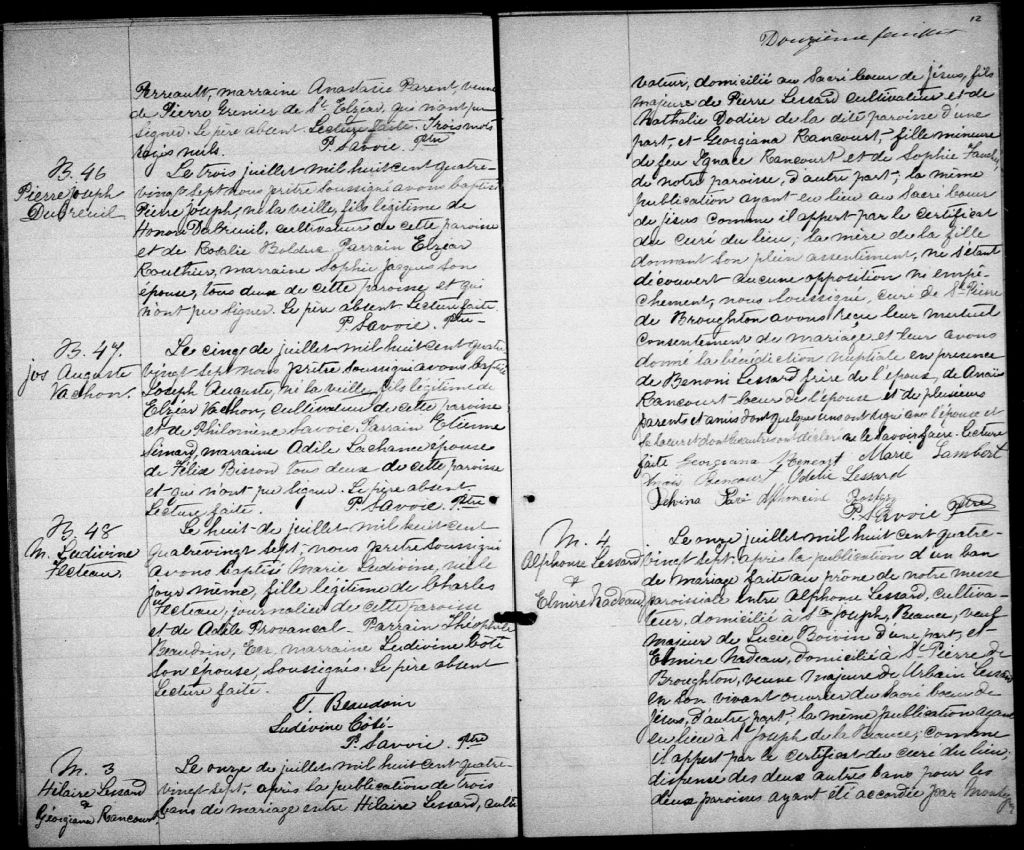 Perreault, marraine Anastasie Parent, veuve
de Pierre Grenier de St. Elzéar, qui n'ont pu
signer. Le père absent. Lecture faite. Trois mots
rayés nuls. P. Savoie. Ptre
B. 46
Pierre Joseph
Dutreuil
Le trois juillet mil huit cent quatre-
vingt sept nous prêtre soussigné avons baptisé
Pierre Joseph, né la veille, fils légitime de
Honoré Dutreuil, cultivateur de cette paroisse
et de Rosalie Bolduc. Parrain Elzéar
Routhier, marraine Sophie Jacques son
épouse, tous deux de cette paroisse et qui
n'ont pu signer. Le père absent Lecture faite
P. Savoie. Ptre
B. 47.
Jos Auguste
Vachon.
Le cinq de juillet mil huit cent quatre
vingt sept nous prêtre soussigné avons baptisé
Joseph Auguste, né la veille, fils légitime de
Elzéar Vachon, cultivateur de cette paroisse
et de Philomène Savoie. Parrain Etienne
Simard, marraine Adèle Lachance épouse
de Félix Bisson tous deux de cette paroisse
et qui n'ont pu signer. Le père absent.
Lecture faite. P. Savoie. Ptre
B. 48
M. Ludivine
Fecteau.
Le huit de juillet mil huit cent
quatrevingt sept, nous prêtre soussigné
avons baptisé Marie Ludivine, née le
jour même, fille légitime de Charles
Fecteau, journalier de cette paroisse
et de Adèle Provencal. Parrain Théophile
Beaudoin, Ecr, marraine Ludivine Côté
son épouse, soussignés. Le père absent
Lecture faite.
T. Beaudoin
Ludévine Côté
P. Savoie. Ptre
M. 3
Hilaire Lessard
&
Géorgiana Rancourt
Le onze de juillet mil huit cent quatre-
vingt sept, après la publication de trois
bans de mariage entre Hilaire Lessard, culti
12
Douzième feuillet
vateur, domicilié au Sacré Coeur de Jésus, fils
majeur de Pierre Lessard cultivateur et de
Nathalie Dodier de la dite paroisse d'une
part, et Georgiana Rancourt, fille mineure
de feu Ignace Rancourt et de Sophie
de notre paroisse, d'autre part; la même
publication ayant eu lieu au Sacré Coeur
de Jésus comme il appert par le certificat
du curé du lieu; la mère de la fille
donnant son plein assentiment, ne s'étant
découvert aucune opposition ni empê-
chement, nous soussigné, curé de St. Pierre
de Broughton avons reçu leur mutuel
consentement de mariage et leur avons
donné la bénédiction nuptiale en présence
de Benoni Lessard frère de l'époux, de Anaïs
Rancourt soeur de l'épouse et de plusieurs
parents et amis dont quelques uns ont signé avec l'épouse et
sa soeur et dont les autres ont déclaré ne le savoir faire. Lecture
faite Georgiana Marie Lambert
Odélie Lessard
Delvina
P. Savoie Ptre
M. 4
Alphonse Lessard
&
Elmire Nadeau
Le onze juillet mil huit cent quatre-
vingt sept, après la publication d'un ban
de mariage faite au prône de notre messe
paroissiale entre Alphonse Lessard, cultiva-
teur, domicilié à St. Joseph, Beauce, veuf
majeur de Lucie Boivin d'une part, et
Elmire Nadeau, domiciliée à St. Pierre de
Broughton, veuve majeure de Urbain Lessard
en son vivant ouvrier du Sacré Coeur de
Jésus, d'autre part, la même publication ayant
eu lieu à St. Joseph de la Beauce; comme
il appert par le certificat du curé du lieu;
dispense des deux autres bans pour les
deux paroisses ayant été accordée par